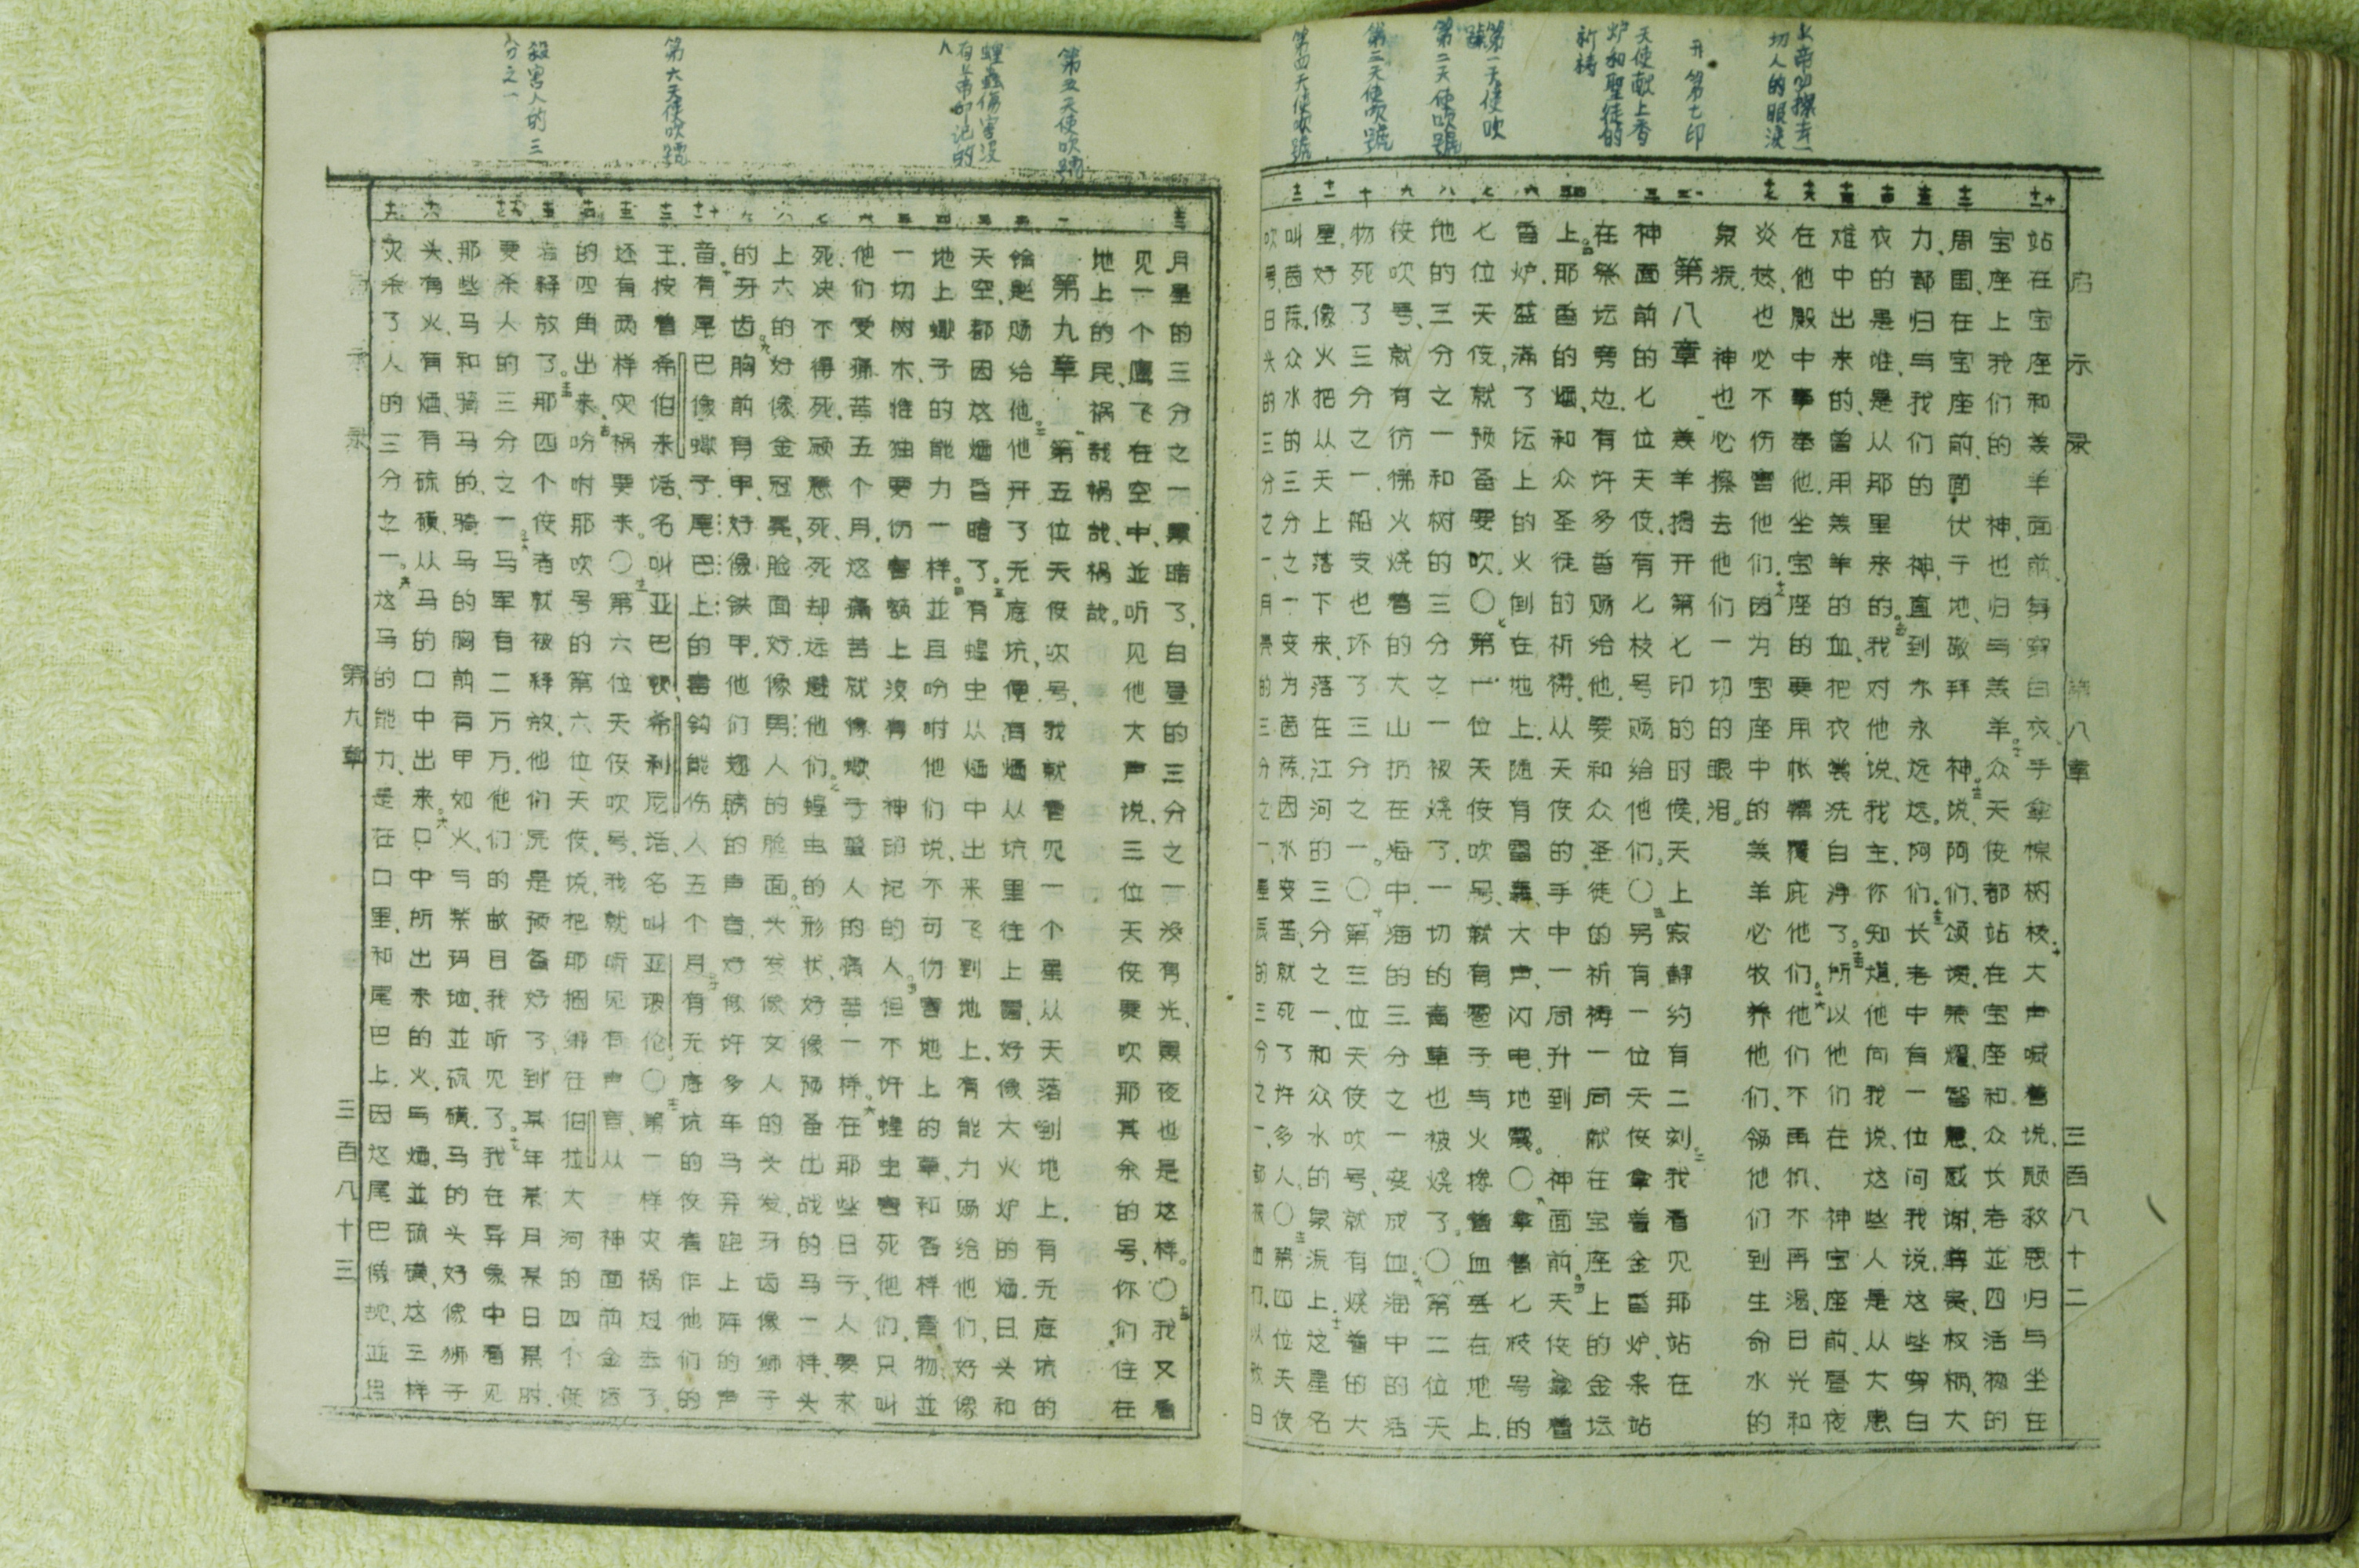 上帝必擦去一切人的眼淚
开第七印
天使献上香炉和聖徒的祈祷
第一天使吹號
第二天使吹號
第三天使吹號
第四天使吹號
启示录 第八章 三百八十二
站在宝座和羔羊面前、身穿白衣、手拿棕树枝、大声喊着说、愿救恩归与坐在
宝座上我们的 神、也归与羔羊。众天使都站在宝座和众长老並四活物的
周围、在宝座前、面伏于地、敬拜 神、说、阿们、颂讚荣耀智慧感谢尊贵权柄大
力、都归与我们的 神、直到永永远远。阿们。长老中有一位问我说、这些穿白
衣的是谁、是从那里来的。我对他说、我主、你知道。他向我说、这些人是从大患
难中出来的、曾用羔羊的血、把衣裳洗白净了。所以他们在 神宝座前、昼夜
在他殿中事奉他、坐宝座的要用帐幕覆庇他们。他们不再饥、不再渴、日光和
炎热、也必不伤害他们。因为宝座中的羔羊必牧养他们、领他们到生命水的
泉源、 神也必擦去他们一切的眼泪。
第八章 羔羊揭开第七印的时候、天上寂静约有二刻。我看见那站在
神面前的七位天使、有七枝号赐给他们。〇另有一位天使拿着金香炉、来站
在祭坛旁边、有许多香赐给他、要和众圣徒的祈祷一同献在宝座上的金坛
上。那香的烟、和众圣徒的祈祷、从天使的手中一同升到 神面前。天使拿着
香炉、盛满了坛上的火、倒在地上、随有雷轰、大声、闪电、地震。〇拿着七枝号的
七位天使、就预备要吹。〇第一位天使吹号、就有雹子与火搀着血丢在地上、
地的三分之一和树的三分之一被烧了、一切的青草也被烧了。〇第二位天
使吹号、就有仿佛火烧着的大山扔在海中、海的三分之一变成血、海中的活
物死了三分之一、船支也坏了三分之一。〇第三位天使吹号、就有烧着的大
星、好像火把从天上落下来、落在江河的三分之一、和众水的泉源上、这星名
叫茵陈、众水的三分之一变为茵陈、因水变苦、就死了许多人。〇第四位天使
吹号、日头的三分之一、月亮的三分之一、星辰的三分之一、都被击打、以致日
第五天使吹號
蝗蟲傷害沒有上帝印记的人
第六天使吹號
殺害人的三分之一
月星的三分之一黑暗了、白昼的三分之一没有光、黑夜也是这样。〇我又看
见一个鹰飞在空中、並听见他大声说、三位天使要吹那其余的号、你们住在
地上的民、祸哉、祸哉、祸哉。
第九章 第五位天使吹号、我就看见一个星从天落到地上、有无底坑的
钥匙赐给他、他开了无底坑、便有烟从坑里往上冒、好像大火炉的烟、日头和
天空、都因这烟昏暗了。有蝗虫从烟中出来飞到地上、有能力赐给他们、好像
地上蝎子的能力一样。並且吩咐他们说、不可伤害地上的草、和各样青物、並
一切树木、惟独要伤害额上没有 神印记的人。但不许蝗虫害死他们、只叫
他们受痛苦五个月、这痛苦就像蝎子螫人的痛苦一样。在那些日子、人要求
死、决不得死、愿意死、死却远避他们。蝗虫的形状、好像预备出战的马一样、头
上六的好像金冠冕、脸面好像男人的脸面。头发像女人的头发、牙齿像狮子
的牙齿。胸前有甲、好像铁甲、他们翅膀的声音、好像许多车马奔跑上阵的声
音。有尾巴像蝎子、尾巴上的毒钩能伤人五个月。有无底坑的使者作他们的
王、按着希伯来话、名叫亚巴顿、希利尼话、名叫亚玻伦。〇第一样灾祸过去了、
还有两样灾祸要来。〇第六位天使吹号、我就听见有声音、从 神面前金坛
的四角出来、吩咐那吹号的第六位天使、说、把那捆绑在伯拉大河的四个使
者释放了。那四个使者就被释放、他们原是预备好了、到某年某月某日某时、
要杀人的三分之一。马军有二万万、他们的数目我听见了。我在异象中看见
那些马和骑马的、骑马的胸前有甲如火、与紫玛瑙、並硫磺、马的头好像狮子
头、有火、有烟、有硫磺、从马的口中出来。口中所出来的火、与烟、並硫磺、这三样
灾杀了人的三分之一。这马的能力、是在口里、和尾巴上、因这尾巴像蛇、並且
启示录 第九章 三百八十三